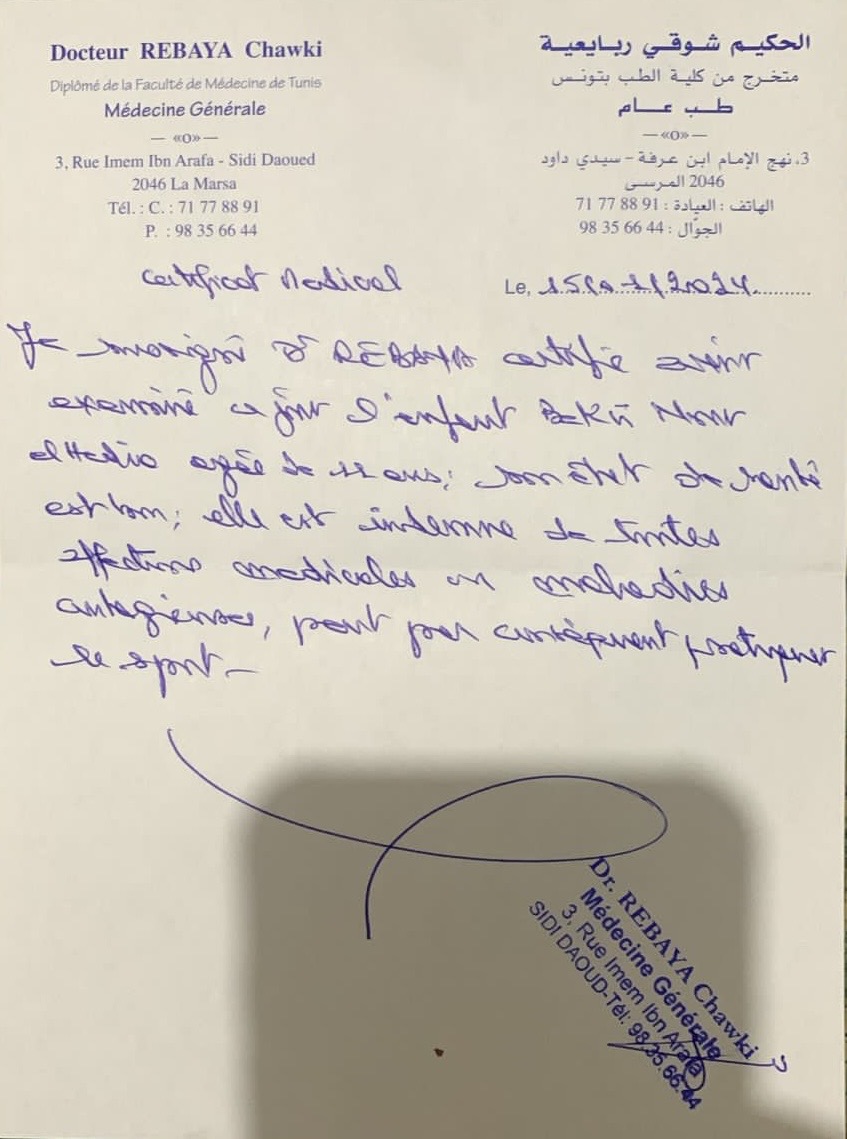 Docteur REBAYA Chawki
Diplômé de la Faculté de Médecine de Tunis
Médecine Générale
— «O» —
3, Rue Imem Ibn Arafa - Sidi Daoued
2046 La Marsa
Tél. : C. : 71 77 88 91
P. : 98 35 66 44
الحكيم شوقي ربايعية
متخرج من كلية الطب بتونس
طب عام
— «O» —
3، نهج الإمام ابن عرفة - سيدي داود
2046 المرسى
الهاتف : العيادة : 71 77 88 91
الجوّال : 98 35 66 44
Certificat Medical
Le,
Je soussigné Dr REBAYA certifie avoir
examiné ce jour l'enfant Nour
agée de ans; son état de santé
est bon; elle est indemne de toutes
affections medicales ou maladies
contagieuses, peut par conséquent pratiquer
le sport-
Dr. REBAYA Chawki
Médecine Générale
3, Rue Imem Ibn Arafa
SIDI DAOUD-Tél: 98.35.66.44